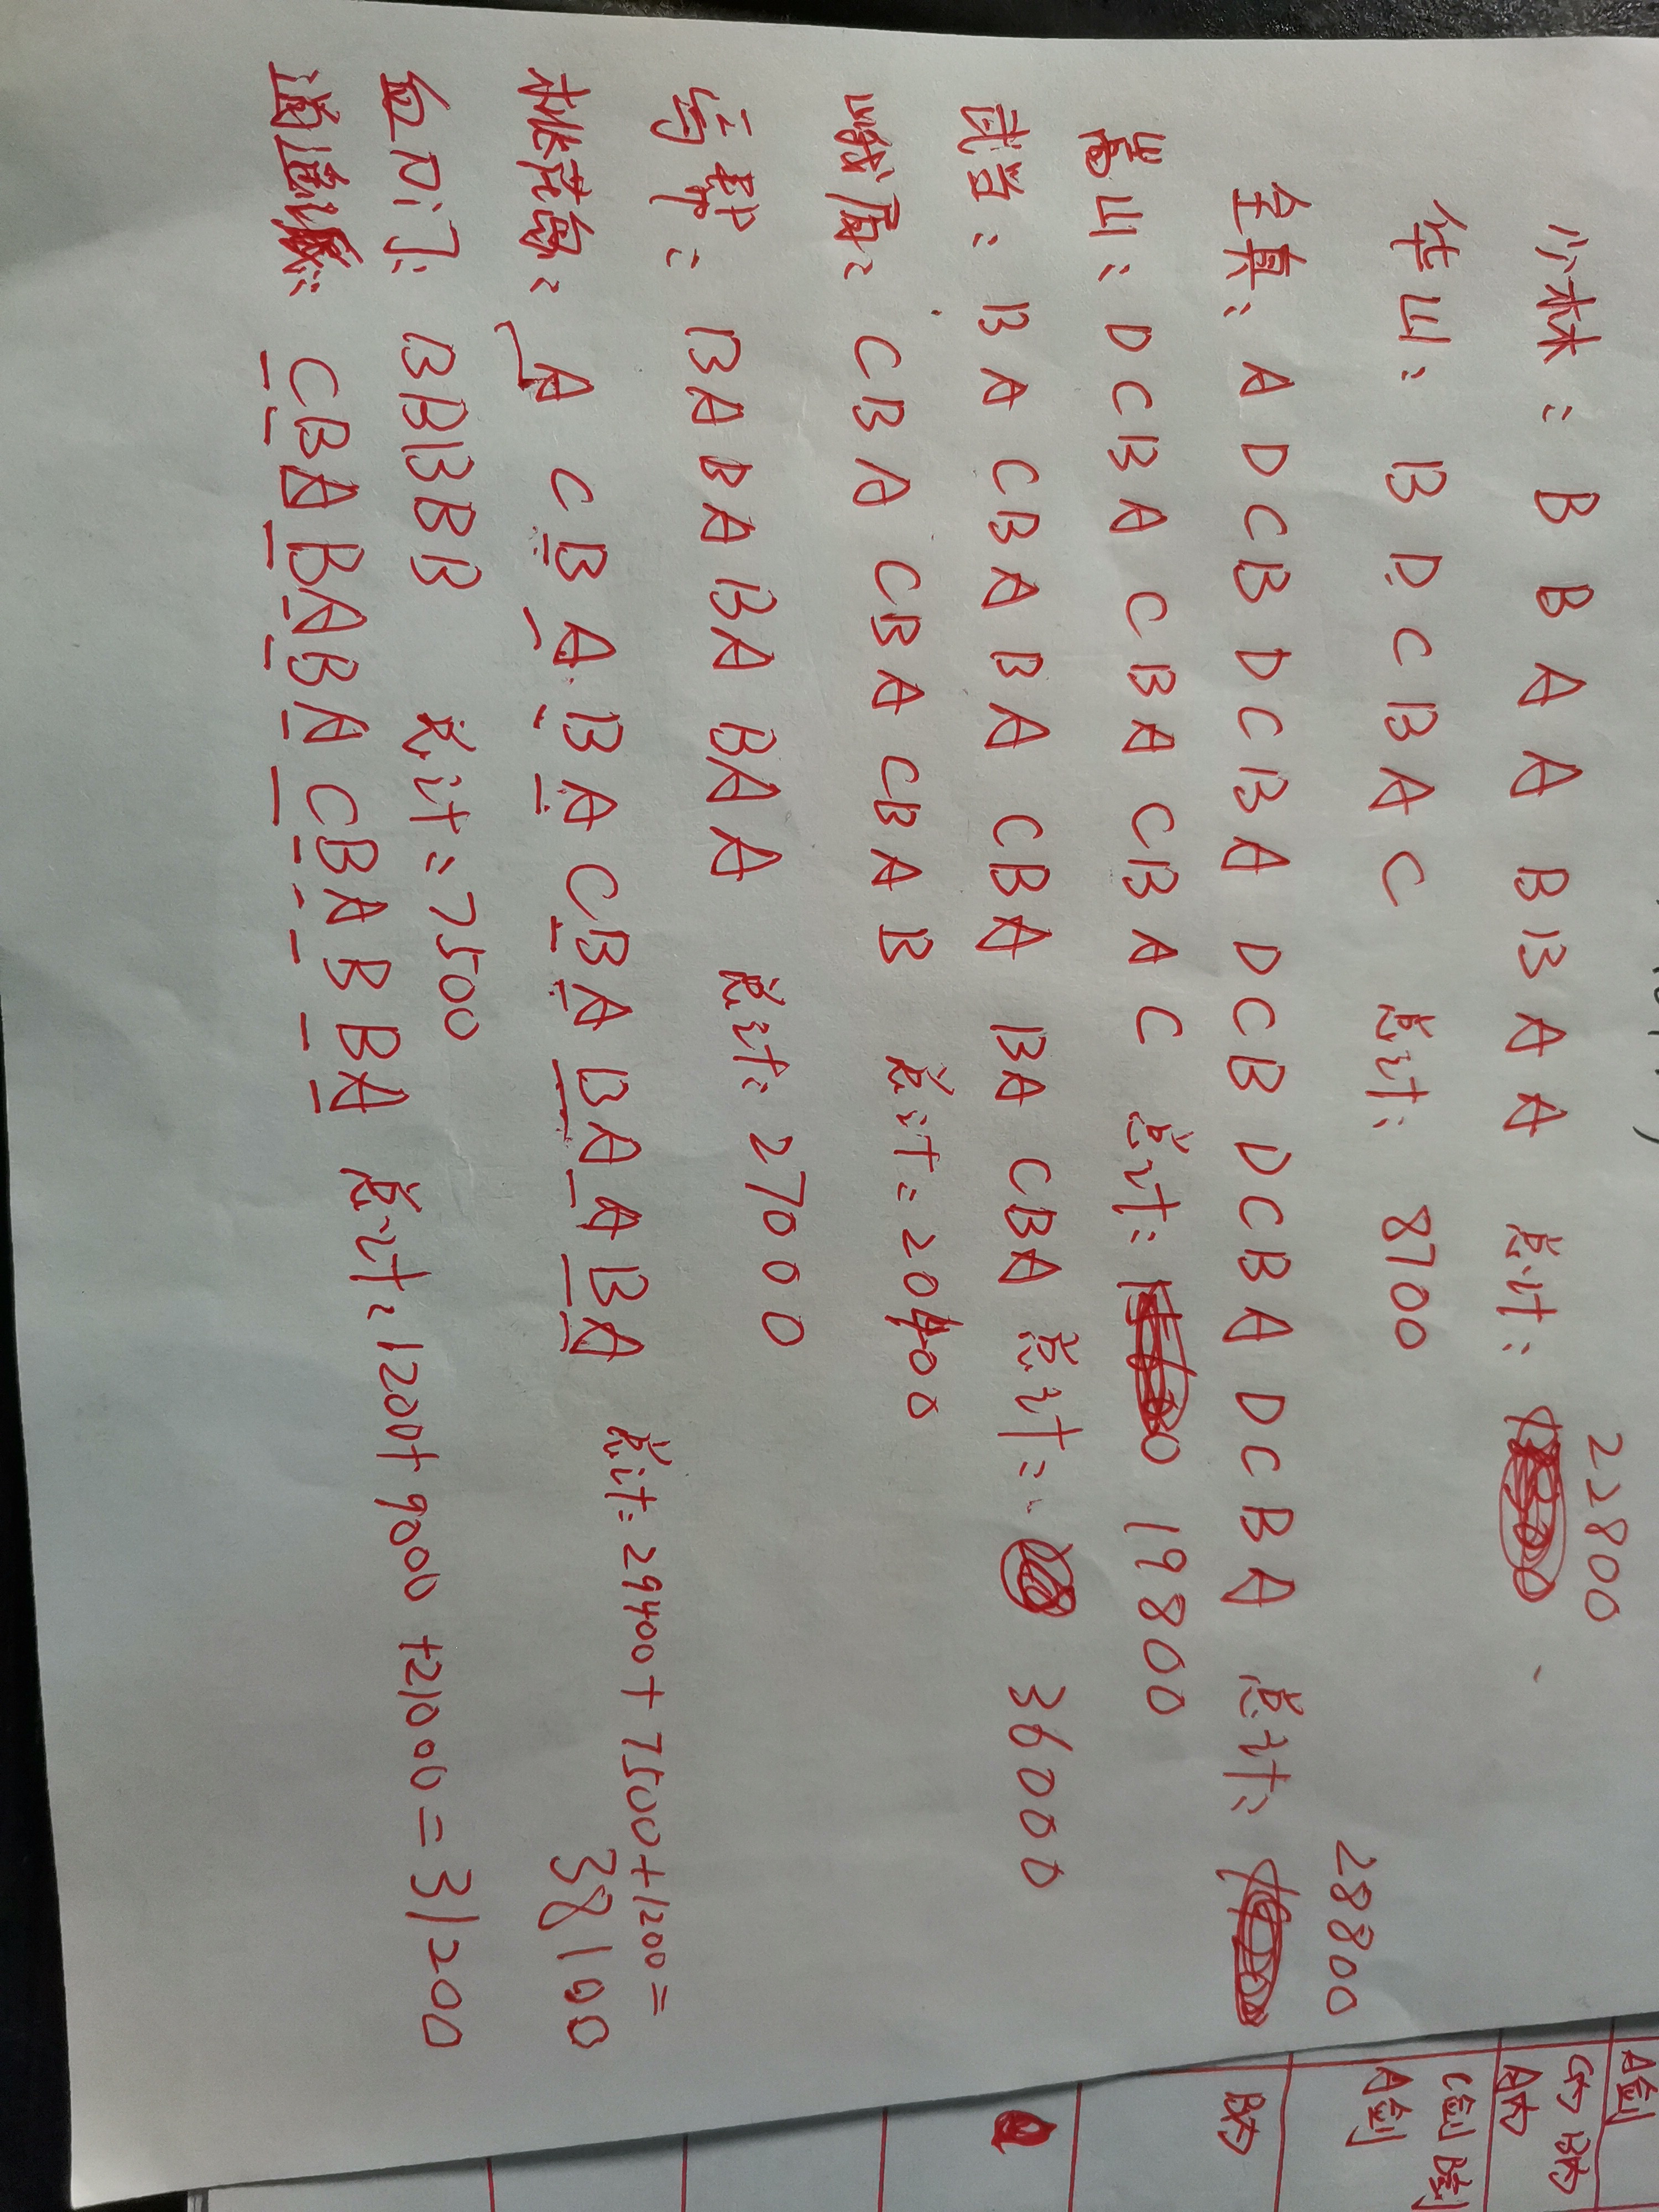 少林: B B A A B B A A 总计: 22800
华山: B D C B A C 总计: 8700
全真: A D C B D C B A D C B D C B A D C B A 总计: 28800
嵩山: D C B A C B A C B A C 总计: 19800
武当: B A C B A B A C B A B A C B A 总计: 36000
峨眉: C B A C B A C B A B 总计: 20400
B A B A B A B A A 总计: 27000
桃花岛: A C B A B A C B A B A A B A 总计: 29400+7500+1200=
38100
血刀门: B B B B B 总计: 7500
逍遥派: C B A B A B A C B A B B A 总计: 1200+9000+21000=31200
A剑
C内 B内
A内
C剑 B剑
A剑
B内